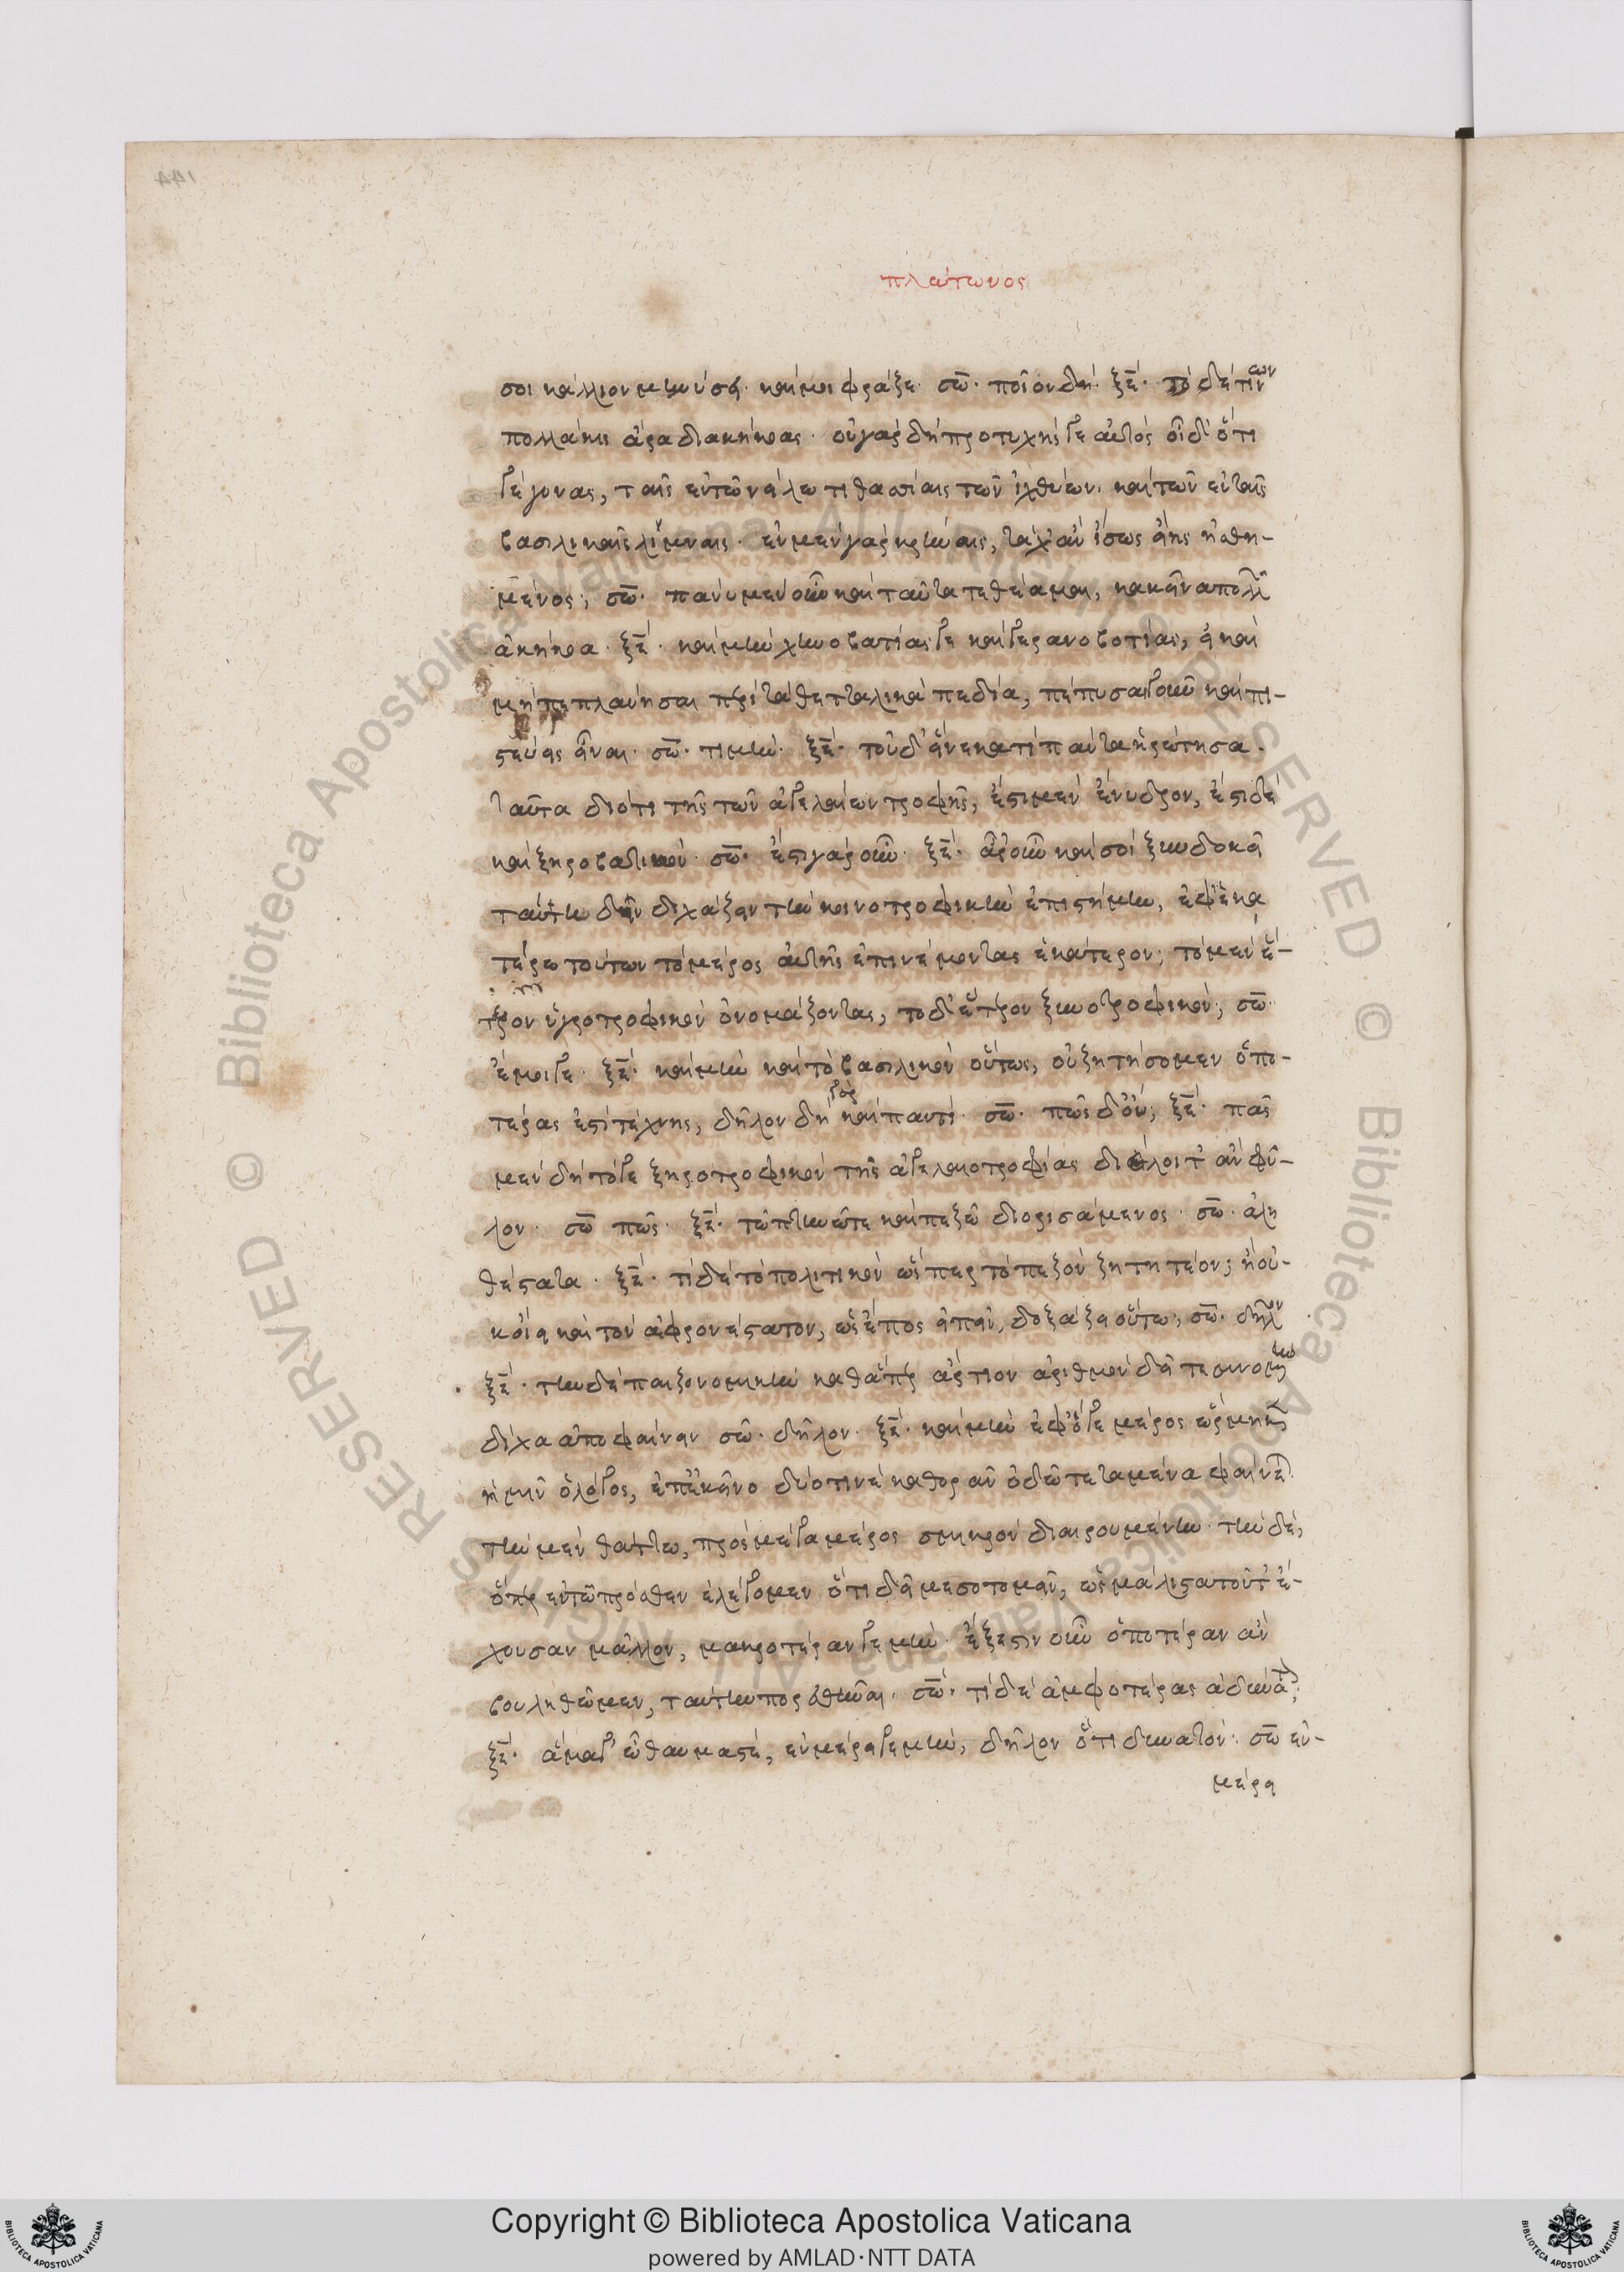 πλάτωνος
σοι κάλλιον μηνύσει· καί μοι φράζε· σω̅· ποῖον δή· ξε̅· τόδε· τινων
πολλάκις ἄρα διακήκοας· οὐ γὰρ δὴ προτυχής γε αὐτὸς οἶδ' ὅτι
γέγονας, ταῖς ἐν τῶ νείλω τιθασίαις τῶν ἰχθύων· καὶ τῶν ἐν ταῖς
βασιλικαῖς λίμναις· ἐν μὲν γὰρ κρήναις, τάχ' ἂν ἴσως εἴης ἠσθη-
μένος; σω̅· πάνυ μὲν οὖν καὶ ταῦτα τεθέαμαι, κἀκεῖνα πολλῶν
ἀκήκοα· ξε̅· καὶ μὴν χηνοβατίας γε καὶ γερανοβοτίας, εἰ καὶ
μὴ πεπλάνησαι περὶ τὰ θετταλικὰ πεδία, πέπυσαι γοῦν καὶ πι-
στεύεις εἶναι· σω̅· τί μήν· ξε̅· τοῦδ' εἵνεκά τι πάντα ἠρώτησα·
ταῦτα διότι τῆς τῶν ἀγελαίων τροφῆς, ἔστι μὲν ἔνυδρον, ἔστι δὲ
καὶ ξηροβατικόν· σω̅· ἔστι γὰρ οὖν· ξε̅· ἆρ' οὖν καὶ σοὶ ξυνδοκεῖ
ταύτη δεῖν διχάζειν τὴν κοινοτροφικὴν ἐπιστήμην, ἐφ' ἑκα
τέρω τούτων τὸ μέρος αὐτῆς ἐπινέμοντας ἑκάτερον; τὸ μὲν ἕ-
τερον ὑγροτροφικὸν ὀνομάζοντας, τὸ δ' ἕτερον ξηροτροφικόν; σω̅·
ἔμοιγε· ξε̅· καὶ μὴν καὶ τὸ βασιλικὸν οὕτως, οὐ ζητήσομεν ὁπο-
τέρας ἐστὶ τέχνης, δῆλον δὴ γὰρ καὶ παντί· σω̅· πῶς δ' οὔ; ξε̅· πᾶς
μὲν δὴ τό γε ξηροτροφικὸν τῆς ἀγελαιοτροφίας διέλοιτ' ἂν φῦ-
λον· σω̅ πῶς· ξε̅· τῶ πτηνῶ τε καὶ πεζῶ διορισάμενος· σω̅· ἀλη
θέστατα· ξε̅· τί δὲ τὸ πολιτικὸν ὥσπερ τὸ πεζὸν ζητητέον; ἢ οὐ-
κ οἴει καὶ τὸν ἀφρονέστατον, ὡς ἔπος εἰπεῖν, δοξάζειν οὕτω; σω̅· δῆλον
ξε̅· τὴν δὲ παιζονομικὴν καθάπερ ἄρτιον ἀριθμὸν δεῖ τεμνομένην
δίχα ἀποφαίνειν σω̅· δῆλον· ξε̅· καὶ μὴν ἐφ' ὅ γε μέρος ὥρμηκεν
ἡμῖν ὁ λόγος, ἐπ' ἐκεῖνο δύο τινὲ καθορᾶν ὁδὼ τεταμένα φαίνεται
τὴν μὲν θάττω, πρὸς μέγα μέρος σμικρὸν διαιρουμένην· τὴν δὲ,
ὅπερ ἐν τῶ πρόσθεν ἐλέγομεν ὅτι δεῖ μεσοτομεῖν, ὡς μάλιστα τοῦτ' ἔ-
χουσαν μᾶλλον, μακροτέραν γε μήν· ἔξεστιν οὖν ὁποτέραν ἂν
βουληθῶμεν, ταύτην πορευθῆναι· σω̅· τί δὲ ἀμφοτέρας ἀδύνατον;
ξε̅· ἅμα γ' ὦ θαυμαστὲ, ἐν μέρει γε μὴν, δῆλον ὅτι δυνατόν· σω̅ ἐν-
μέρει